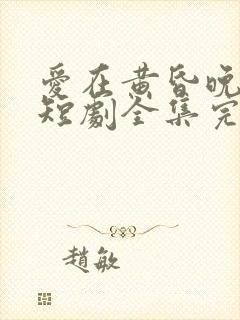 愛在黄昏晚
短劇全集完
趙敏